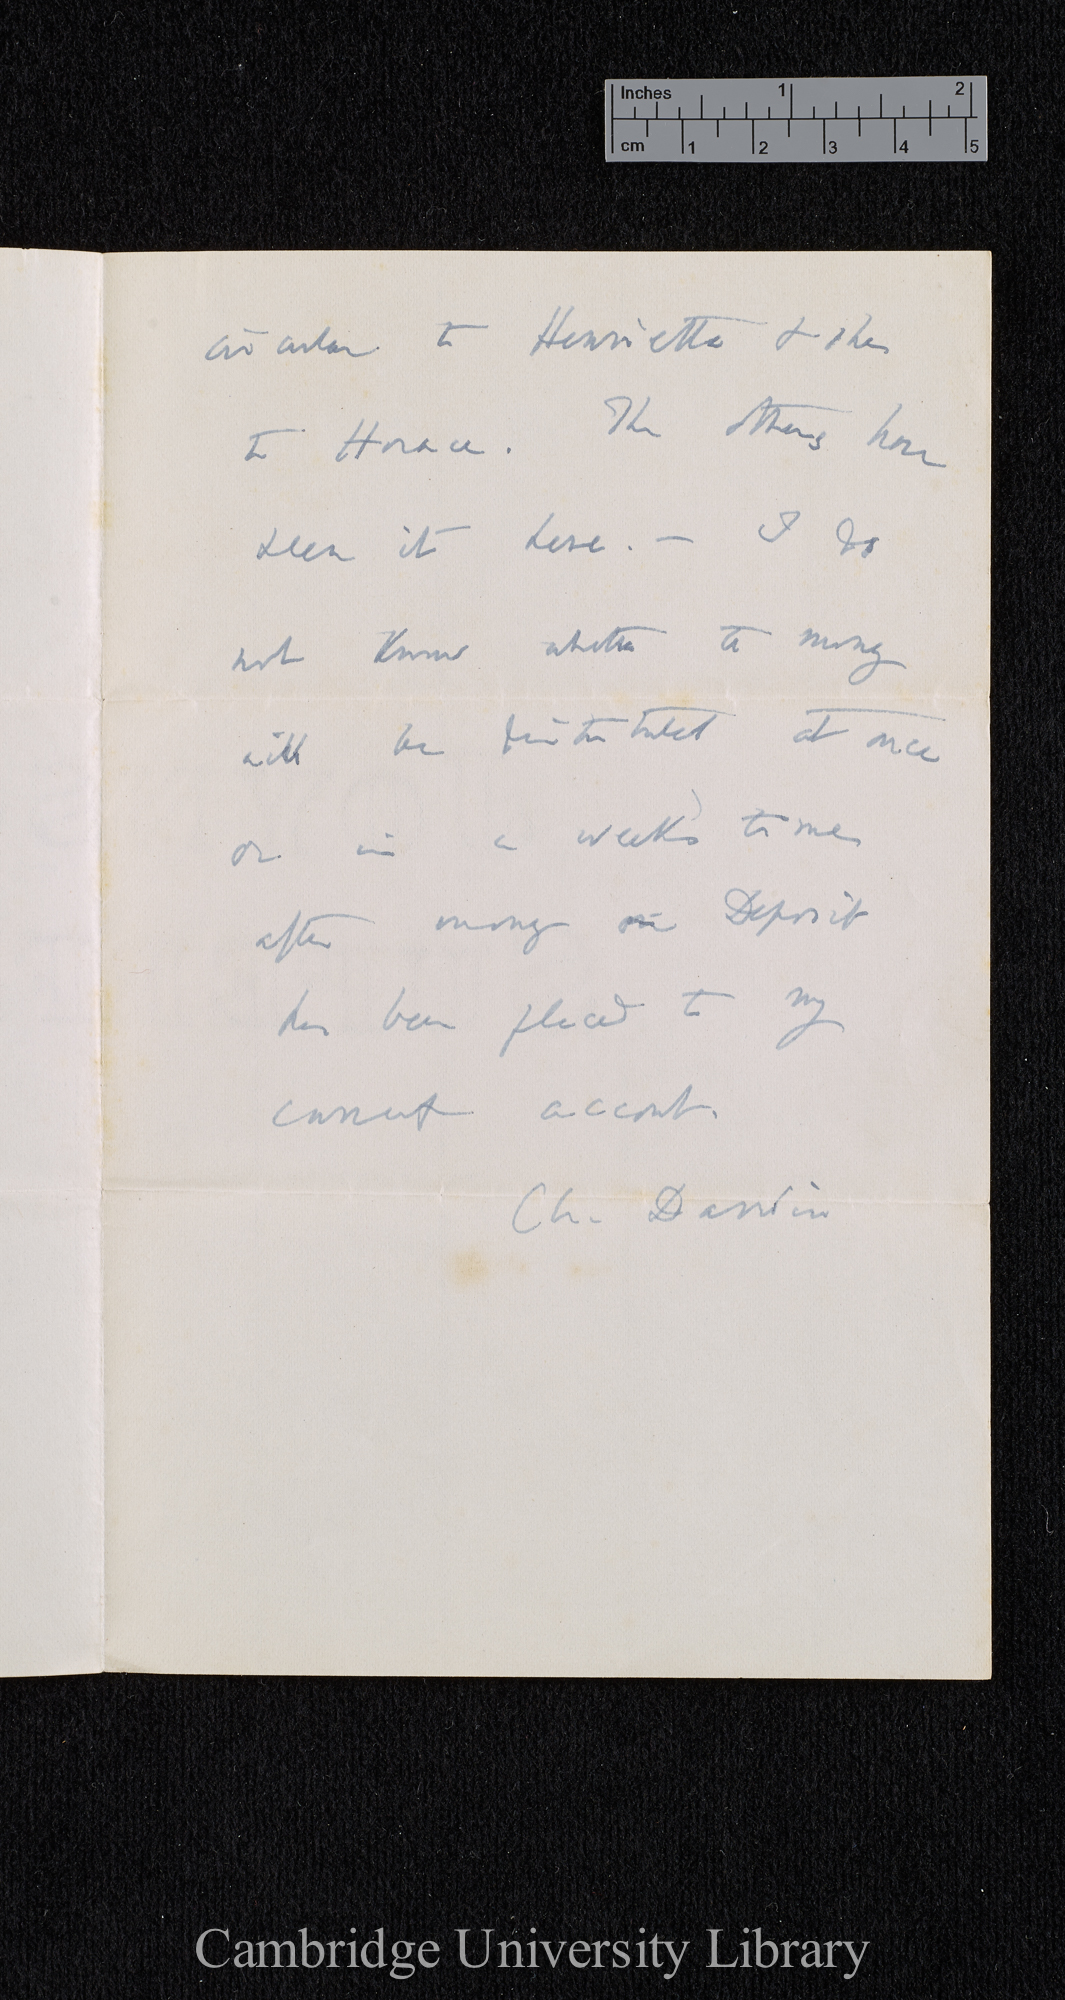 Inches 1 2
cm 1 2 3 4 5
circular to Henrietta & she
to Horace. The others have
seen it here.— I do
not know whether the money
will be distributed at once
or in a week's time
after money on Deposit
has been placed to my
current account.
Ch. Darwin
Cambridge University Library